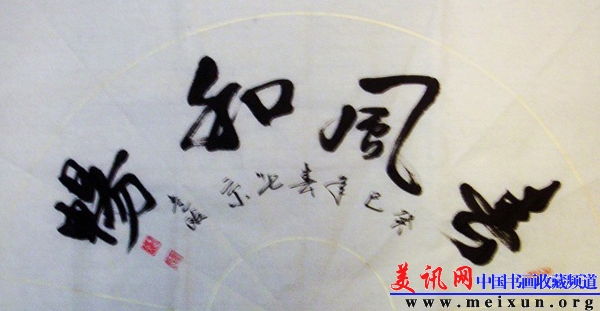 惠風和暢
癸巳年春北京
美讯网中国书画收藏频道
www.meixun.org